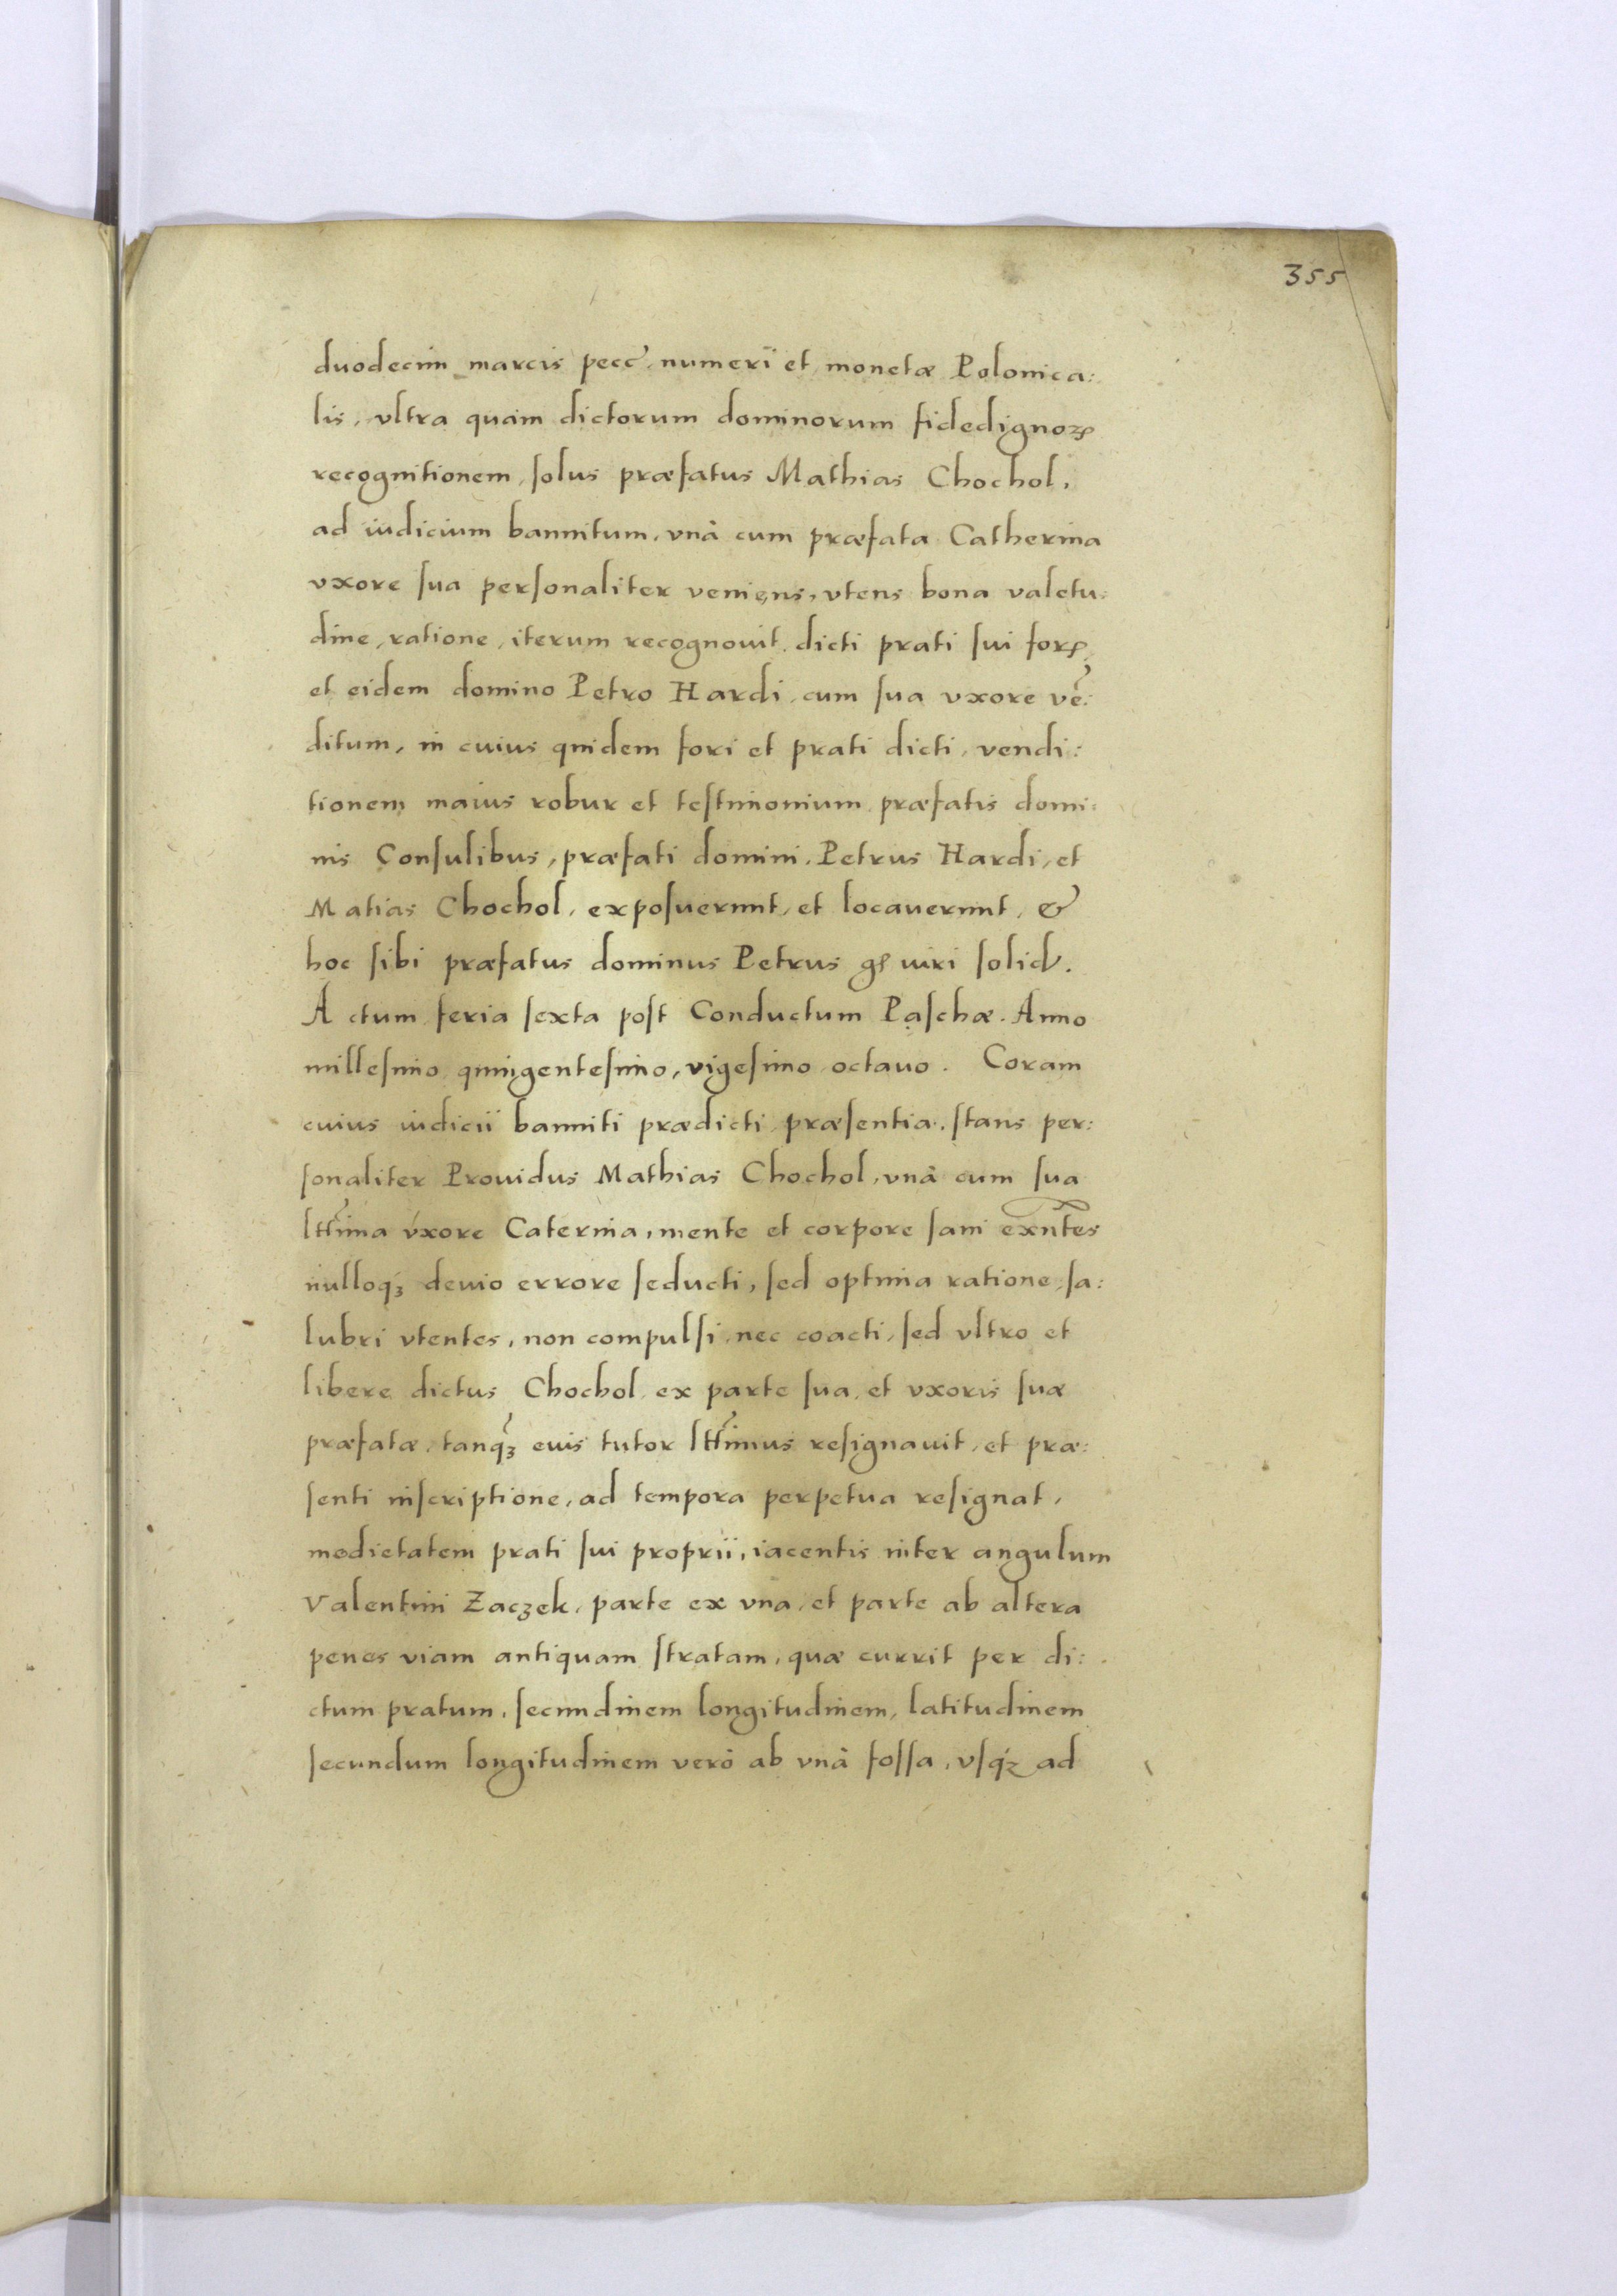 355
duodecim marcis pecc̃. numeri et monetæ Polonica:
lis, vltra quam dictorum dominorum fidedignoꝝ
recognitionem, ſolus præfatus Mathias Chochol,
ad iudicium bannitum, vnà cum præfata Catherina
vxore ſua perſonaliter veniens, vtens bona valetu:
dine, ratione, iterum recognouit dicti prati ſui forꝭ
et eidem domino Petro Hardi, cum ſua vxore vẽ:
ditum, in cuius quidem fori et prati dicti, vendi:
tionem maius robur et teſtimonium præfatis domi:
nis Conſulibus, præfati domini, Petrus Hardi, et
Matias Chochol, expoſuerunt, et locauerunt, &
hoc ſibi præfatus dominus Petrus iuri ſolid.
Actum feria ſexta poſt Conductum Paſchæ. Anno
milleſimo quingenteſimo, vigeſimo octauo. Coram
cuius iudicii banniti prædicti præſentia, ſtans per:
ſonaliter Prouidus Mathias Chochol, vnà cum ſua
lttĩma vxore Caterina, mente et corpore ſani exñtes
nulloqꝫ deuio errore ſeducti, ſed optima ratione ſa:
lubri vtentes, non compulſi, nec coacti, ſed vltro et
libere dictus Chochol, ex parte ſua, et vxoris ſuæ
præfatæ, tanqꝫ̃ euis tutor lttĩmus reſignauit, et præ:
ſenti inſcriptione, ad tempora perpetua reſignat,
medietatem prati ſui proprii, iacentis inter angulum
Valentini Zaczek, parte ex vna, et parte ab altera
penes viam antiquam ſtratam, quæ currit per di:
ctum pratum, ſecundinem longitudinem, latitudinem
ſecundum longitudinem verò ab vnà foſſa, vſqꝫ ad